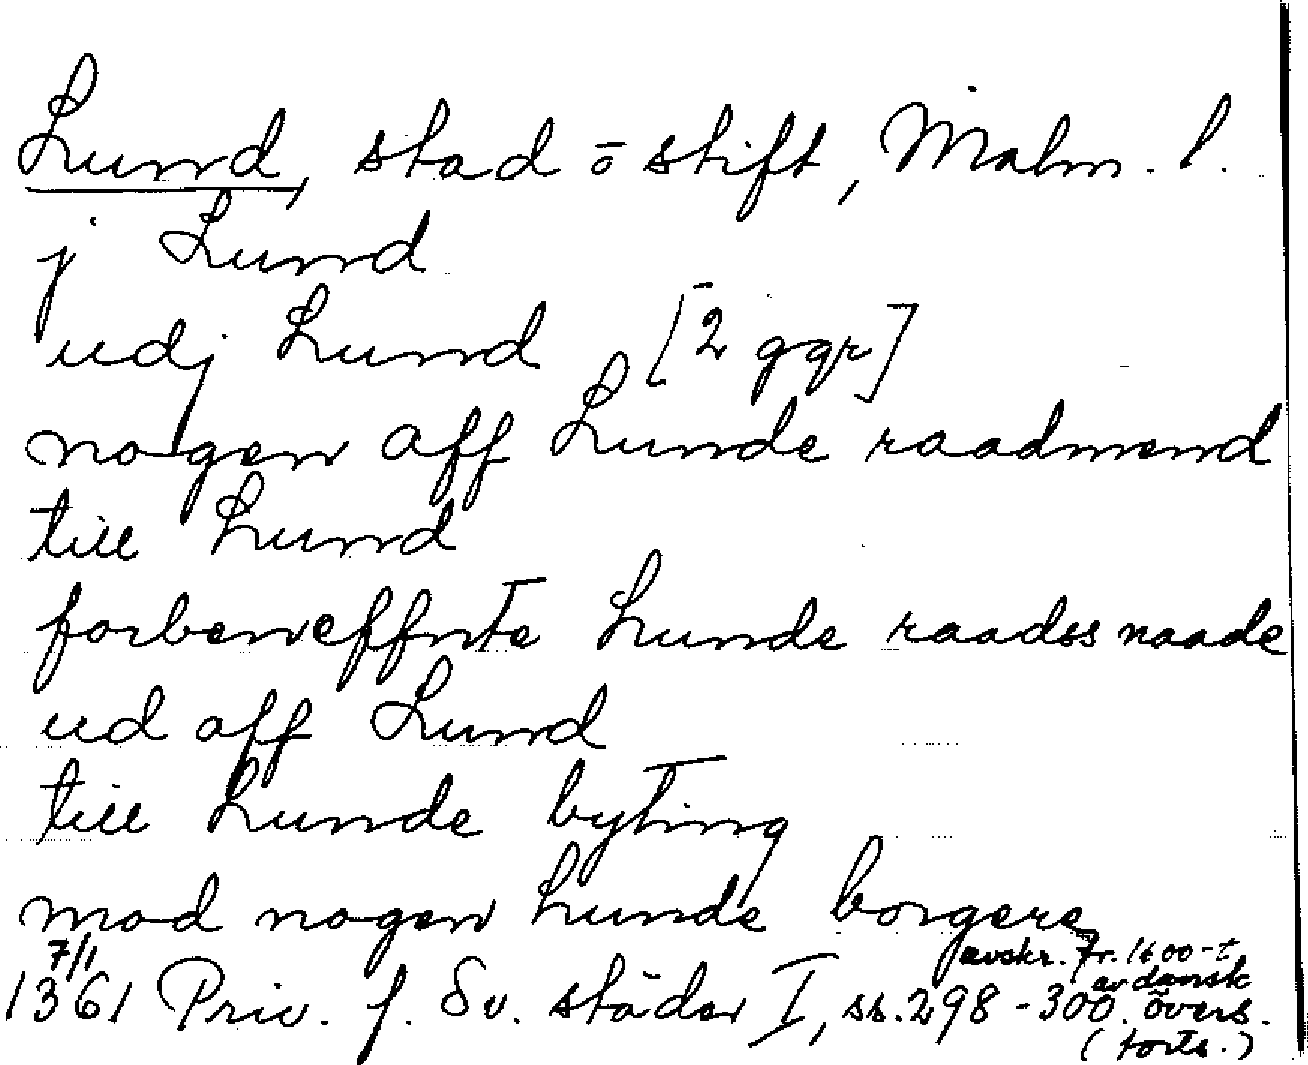 Lund, stad o stift, Malm. l.
j Lund
udj Lund [2 ggr]
nogen aff Lunde raadmend
till Lund
forbeneffnte Lunde raadss naade
ud aff Lund
till Lunde byting
mod nogen Lunde borgere
7/1 1361 Priv. f. Sv. städer I, ss. 298-300. avskr. fr. 1600-t av dansk övers.
(forts.)